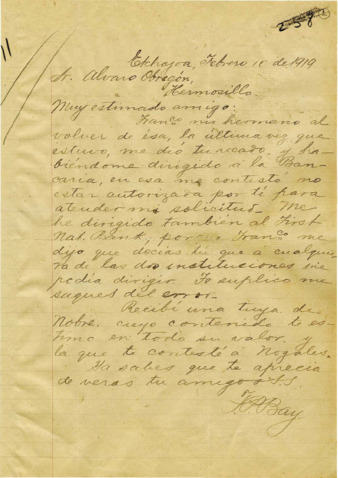 Etchojoa, Febrero 10 de 1919
Sr. Alvaro Obregón,
Hermosillo.
Muy estimado amigo:
Franco mi hermano al
volver de esa, la última vez que
estuvo, me dió tu recado, y ha-
biéndome dirigido á la Ban-
caria, en esa me contestó no
estar autorizada por tí para
atender mi solicitud. Me
he dirigido también al First
Nat. Bank, porque Franco me
dijo que decías tú que á cualquie-
ra de las dos instituciones me
podia dirigir. Te suplico me
saques del error.
Recibí una tuya de
Nobre. cuyo contenido te es-
timo en todo su valor y
la que te contesté á Nogales.
Ya sabes que te aprecia
de veras tu amigo y S.S.
Bay